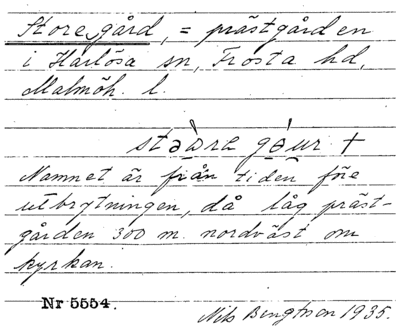 Storegård, = prästgården
i Harlösa sn, Frosta hd,
Malmöh. l.
Namnet är från tiden före
utbrytningen, då låg präst-
gården 300 m. nordväst om
kyrkan.
Nr 5554.
Nils Bengtsson 1935.